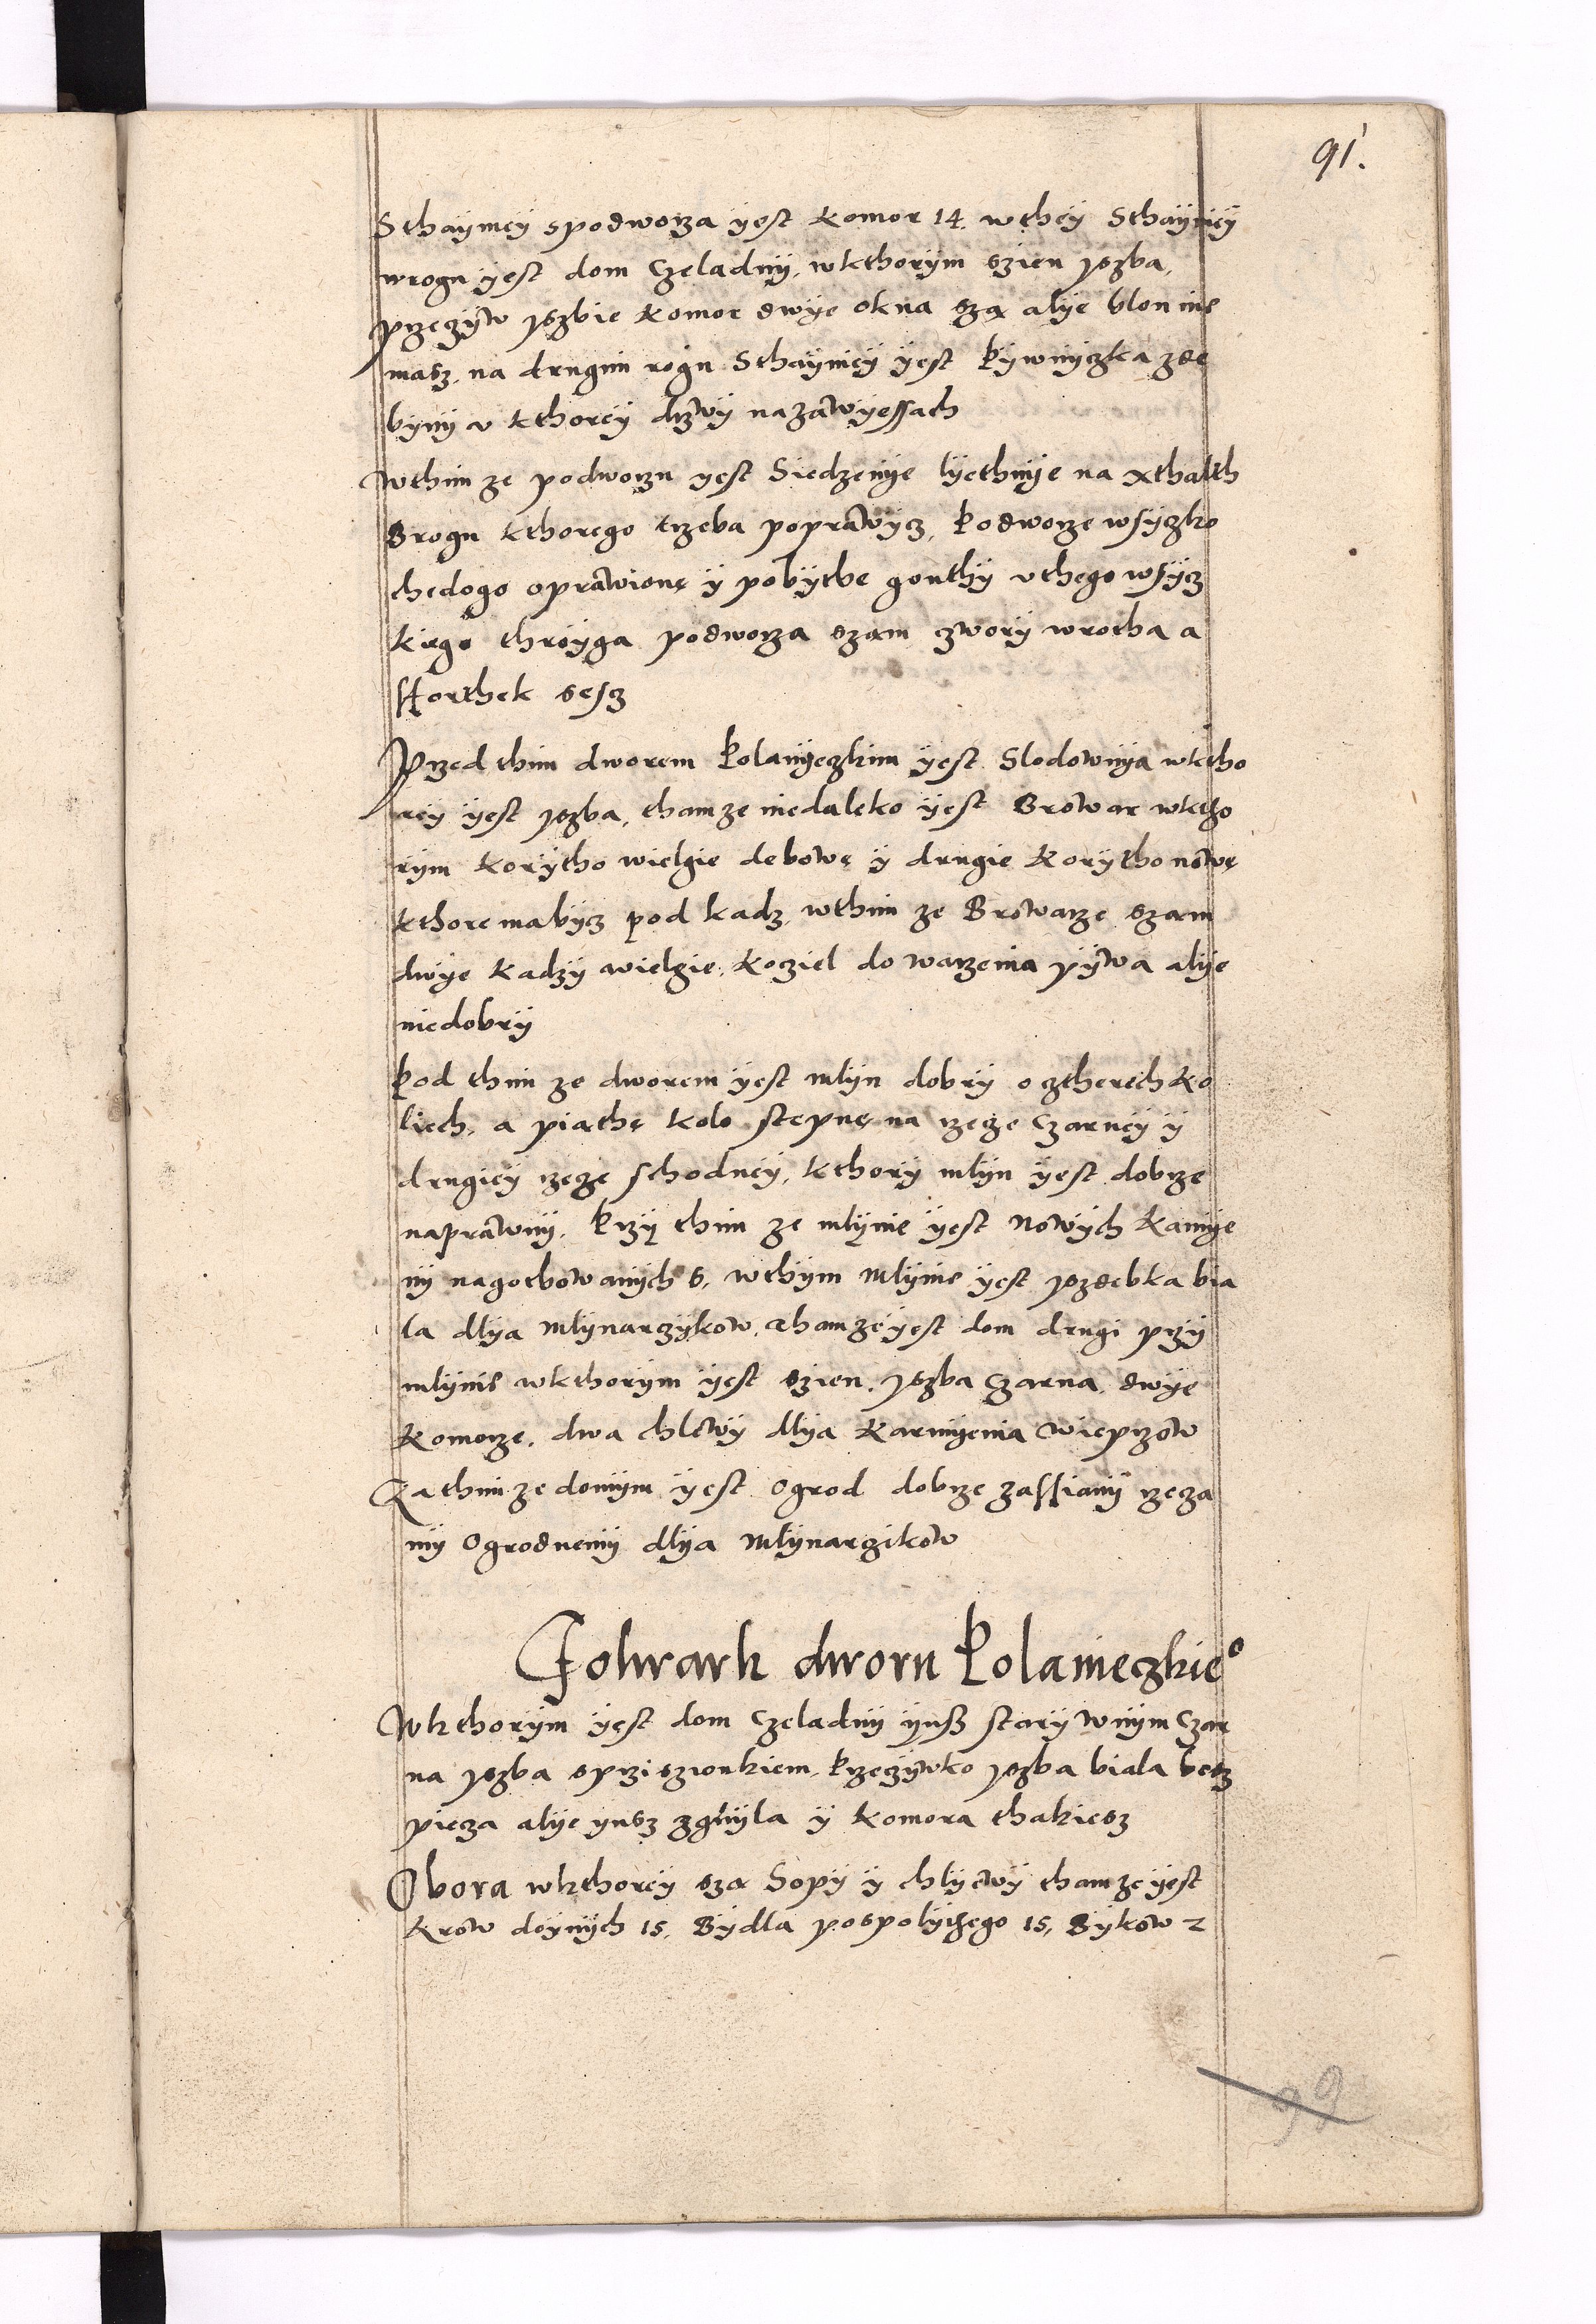 91.
Sthayniey spodworza yest komor 14. wthey Sthayniey
wrogu yest dom Czeladny, wkthorym szien yszba,
przeczyw yszbie komor dwye okna szą alye blon nie
masz, na drugim rogu Sthayniey yest Pywnyczka zde
byny v kthorey drzwy nazawyessach
Wthim ze podworzu yest Siedzenye lyethnye na xthalth
Brogu kthorego trzeba poprawycz, Podworze wsyczko
chedogo oprawione y pobythe gonthy vthego wsycz
kiego throyga podworza szam czwory wrotha a
ffortek sescz
Przed thim dworem Polanyeczkim yest Slodownya wktho
rey yest yszba, thamze niedaleko yest Browar wktho
rym korytho wielgie debowe y drugie korytho nowe
kthore mabycz pod kadz, wthim ze Browarze szam
dwye kadzy wielgie, koziel do warzenia pywa alye
niedobry
Pod thim ze dworem yest mlyn dobry o cztherech ko
liech, a piathe kolo stepne na rzecze Czarney y
drugiey rzecze schodney, kthory mlyn yest dobrze
naprawny, Przy thim ze mlynie yest nowych kamye
ny nagothowanych 6, wthym mlynie yest yszdebka bia
la dlya mlynarzykow, thamze yest dom drugi przy
mlynie wkthorym yest szien, yszba Czarna, dwye
komorze, dwa chlewy dlya karmyenia wieprzow
Zathim ze domym yest ogrod dobrze zassiany rzecza
my Ogrodnemy dlya mlynarzikow
Folwark dworu Polanieczkie°
Wkthorym yest dom Czeladny ynsz stary wnym Czar
na yszba sprzisionkiem, Przeczywko yszba biala besz
pieca alye ynsz zgnyla y komora thakiesz
Obora wkthorey szą Sopy y chlyewy thamze yest
krow doynych 15, Bydla pospolyczego 15, Bykow 2
99